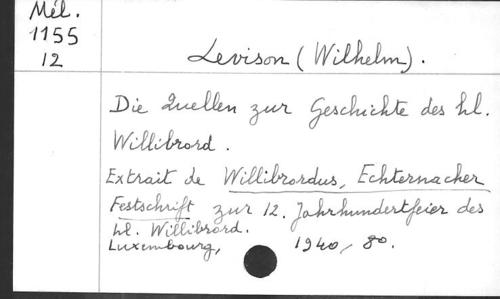 Mél.
1155
12
Levison (Wilhelm).
Die Quellen zur Geschichte des hl.
Willibrord.
Extrait de Willibrordus, Echternacher
Festschrift zur 12. Jahrhundertfeier des
hl. Willibrord.
Luxembourg, 1940, 8o.